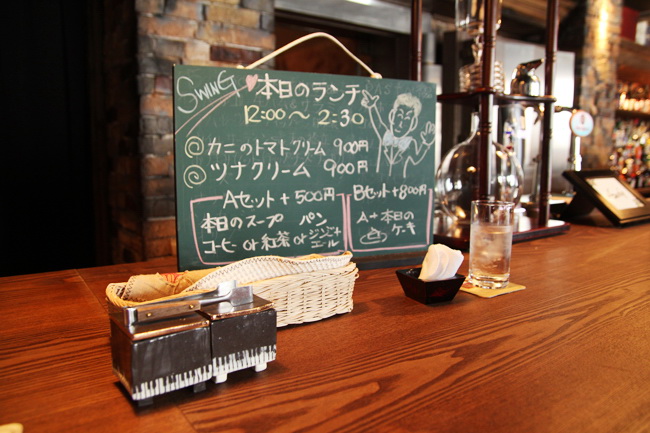 SWING ♥ 本日のランチ
12:00～2:30
カニのトマトクリーム 900円
ツナクリーム 900円
Aセット+500円
本日のスープ パン
コーヒー or 紅茶 or ジンジャーエール
Bセット+800円
A+本日の
ケーキ